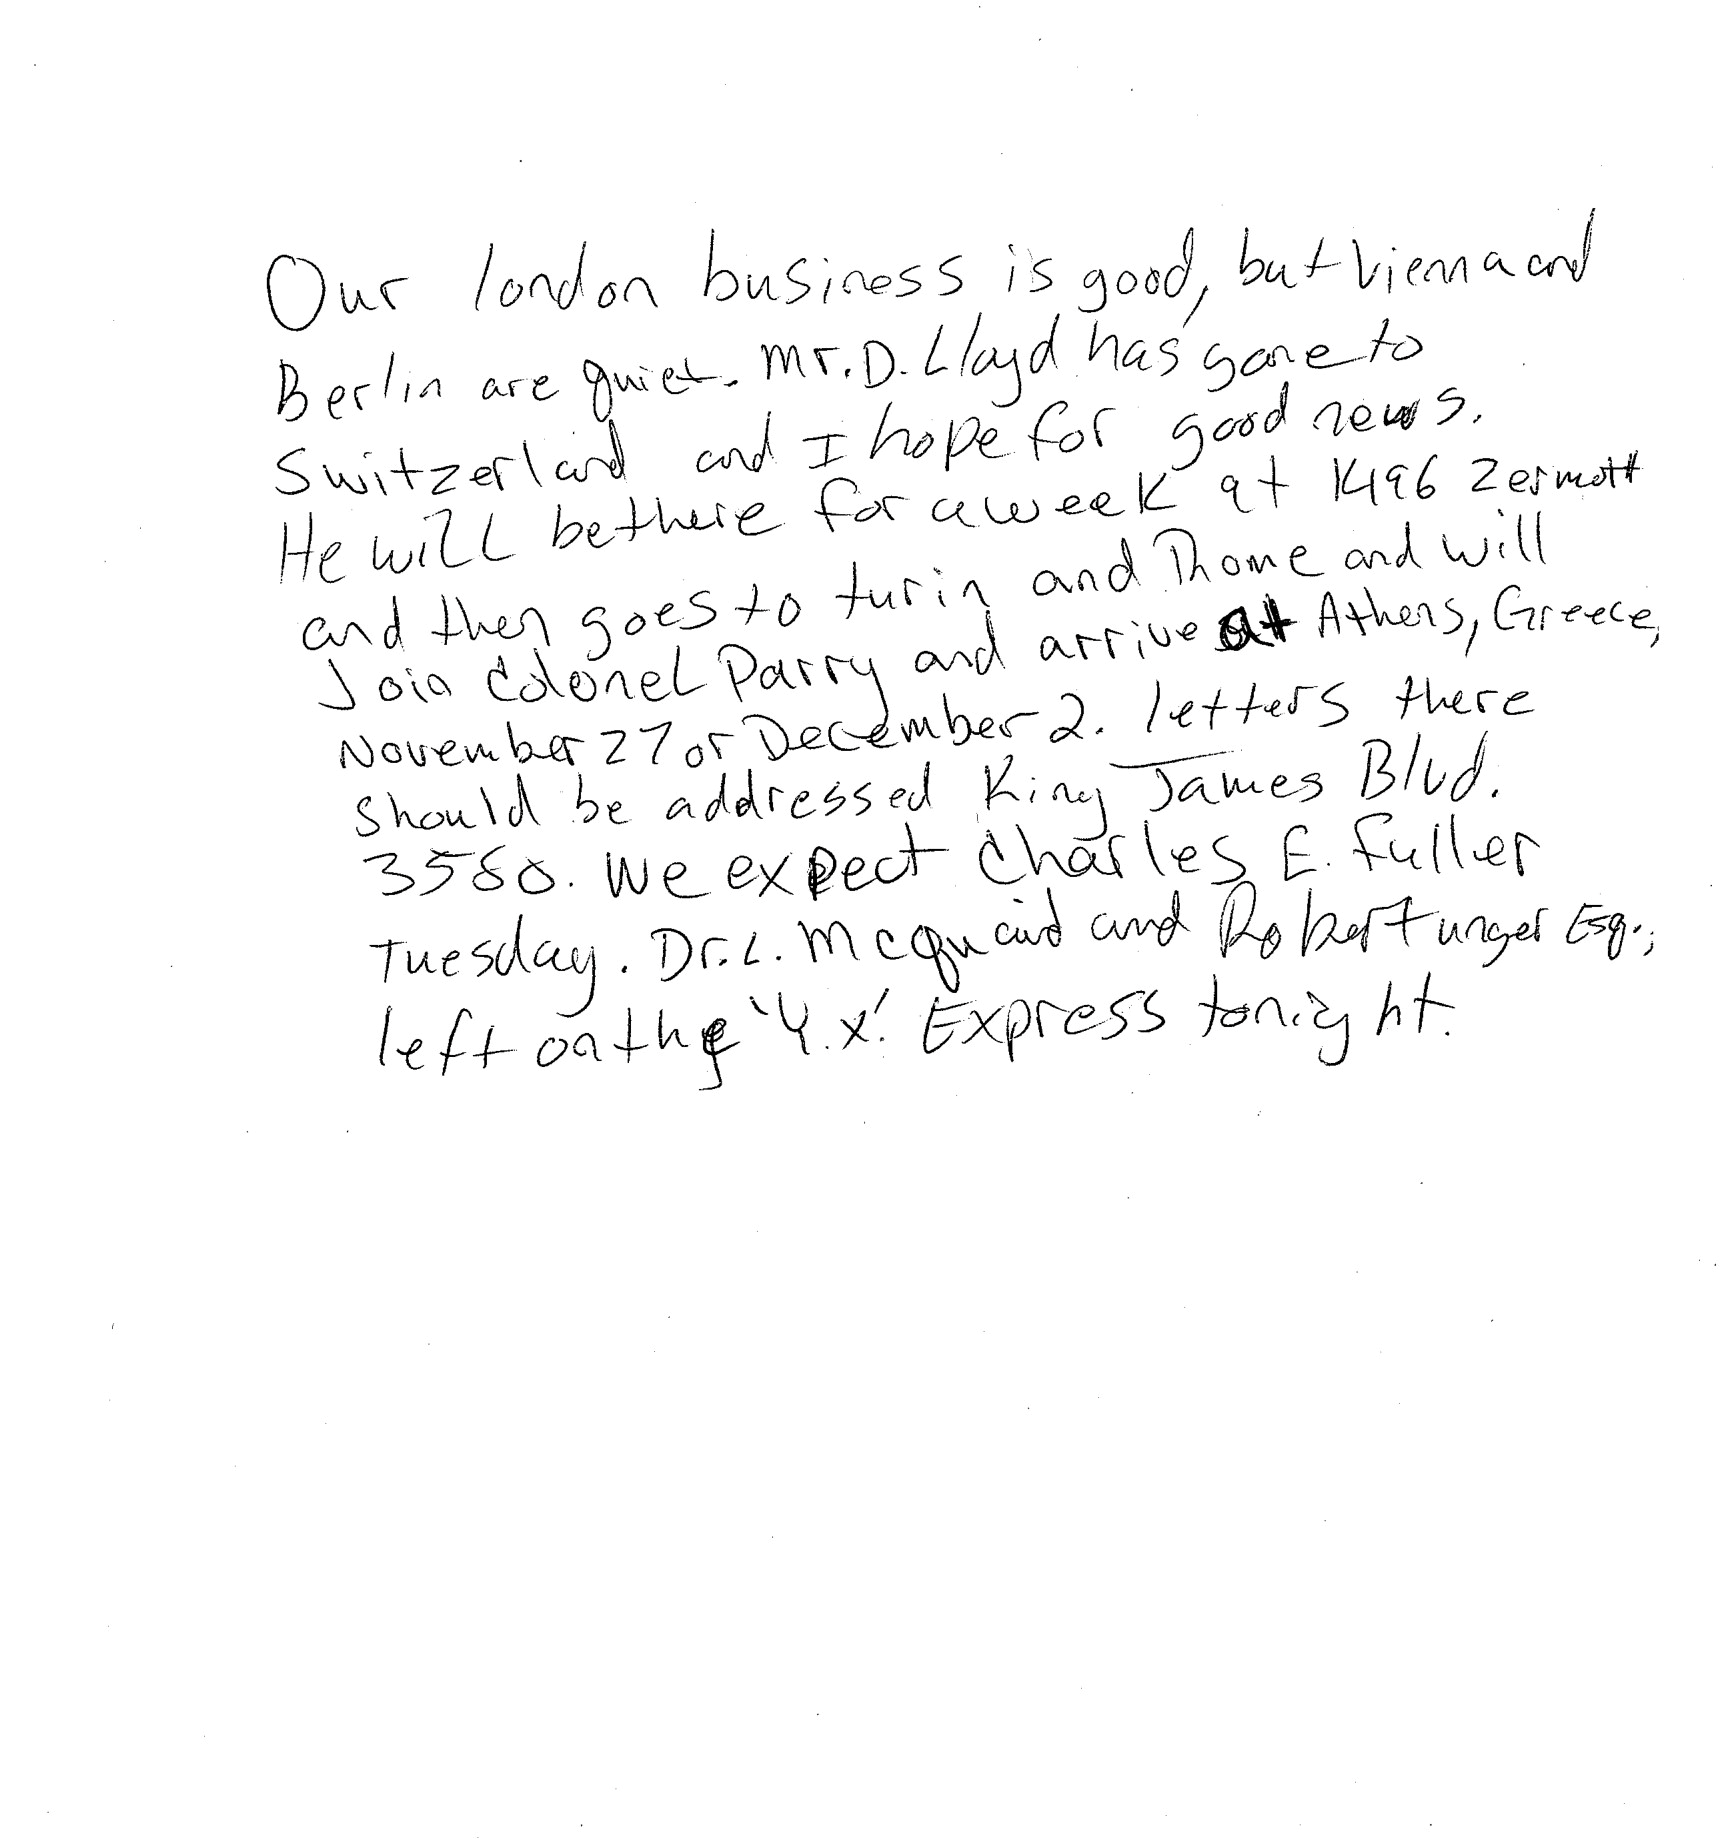 Our london business is good, but Vienna and
Berlin are quiet. Mr. D. Lloyd has gone to
Switzerland and I hope for good news.
He will be there for a week at 1496 Zermott
and then goes to turin and Rome and will
Join Colonel Parry and arrive at Athens, Greece,
November 27 or December 2. letters there
should be addressed King James Blvd.
3580. We expect Charles E. Fuller
Tuesday. Dr. L. McQuaid and Robert unger Esq.,
left on the 'Y.X.' Express tonight.